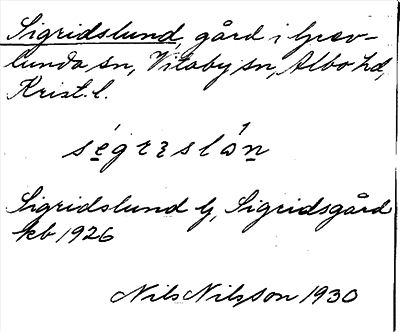 Sigridslund, gård i Grev-
lunda sn, Vitaby sn, Albo hd,
Krist. l.
Sigridslund G, Sigridsgård
kb 1926
Nils Nilsson 1930